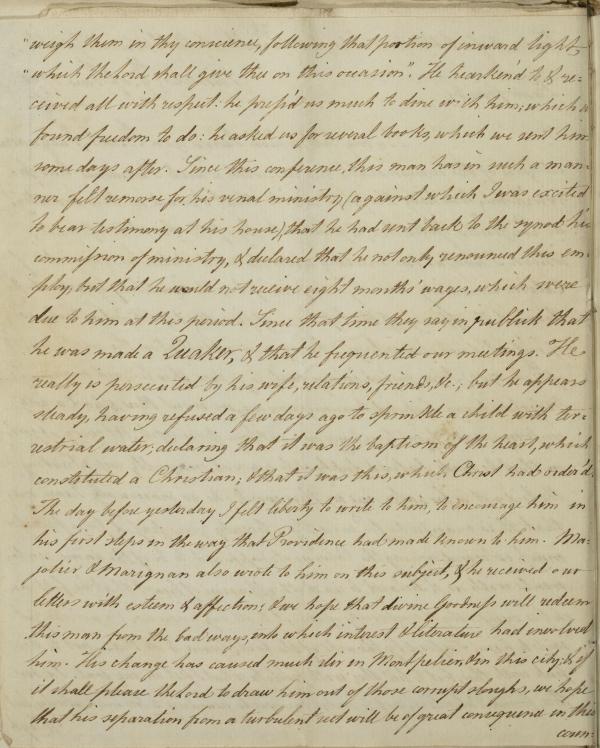 weigh them in thy conscience, following that portion of inward light,
"which the Lord shall give thee on this occasion". He hearken'd to & re=
ceived all with respect: he press'd us much to dine with him; which we
found freedom to do: he asked us for several books, which we sent him
some days after. Since this conference, this man has in such a man=
ner felt remorse for his venal ministry, (against which I was excited
to bear testimony at his house), that he had sent back to the synod his
commission of ministry, & declared that he not only renounced this em=
ploy, but that he would not receive eight months' wages, which were
due to him at this period. Since that time they say in publick that
he was made a Quaker, & that he frequented our meetings. He
really is persecuted by his wife, relations, friends, &c.; but he appears
steady, having refused a few days ago to sprinkle a child with ter=
restrial water; declaring that it was the baptism of the heart, which
constituted a Christian; & that it was this, which Christ had order'd.
The day before yesterday I felt liberty to write to him, to encourage him in
his first steps in the way that Providence had made known to him. Ma=
jolier & Marignan also wrote to him on this subject, & he received our
letters with esteem & affection; & we hope that divine Goodness will redeem
this man from the bad ways, into which interest & literature had involved
him. His change has caused much stir in Montpelier, & in this city; & if
it shall please the Lord to draw him out of those corrupt sloughs, we hope
that his separation from a turbulent sect will be of great consequence in this
coun=